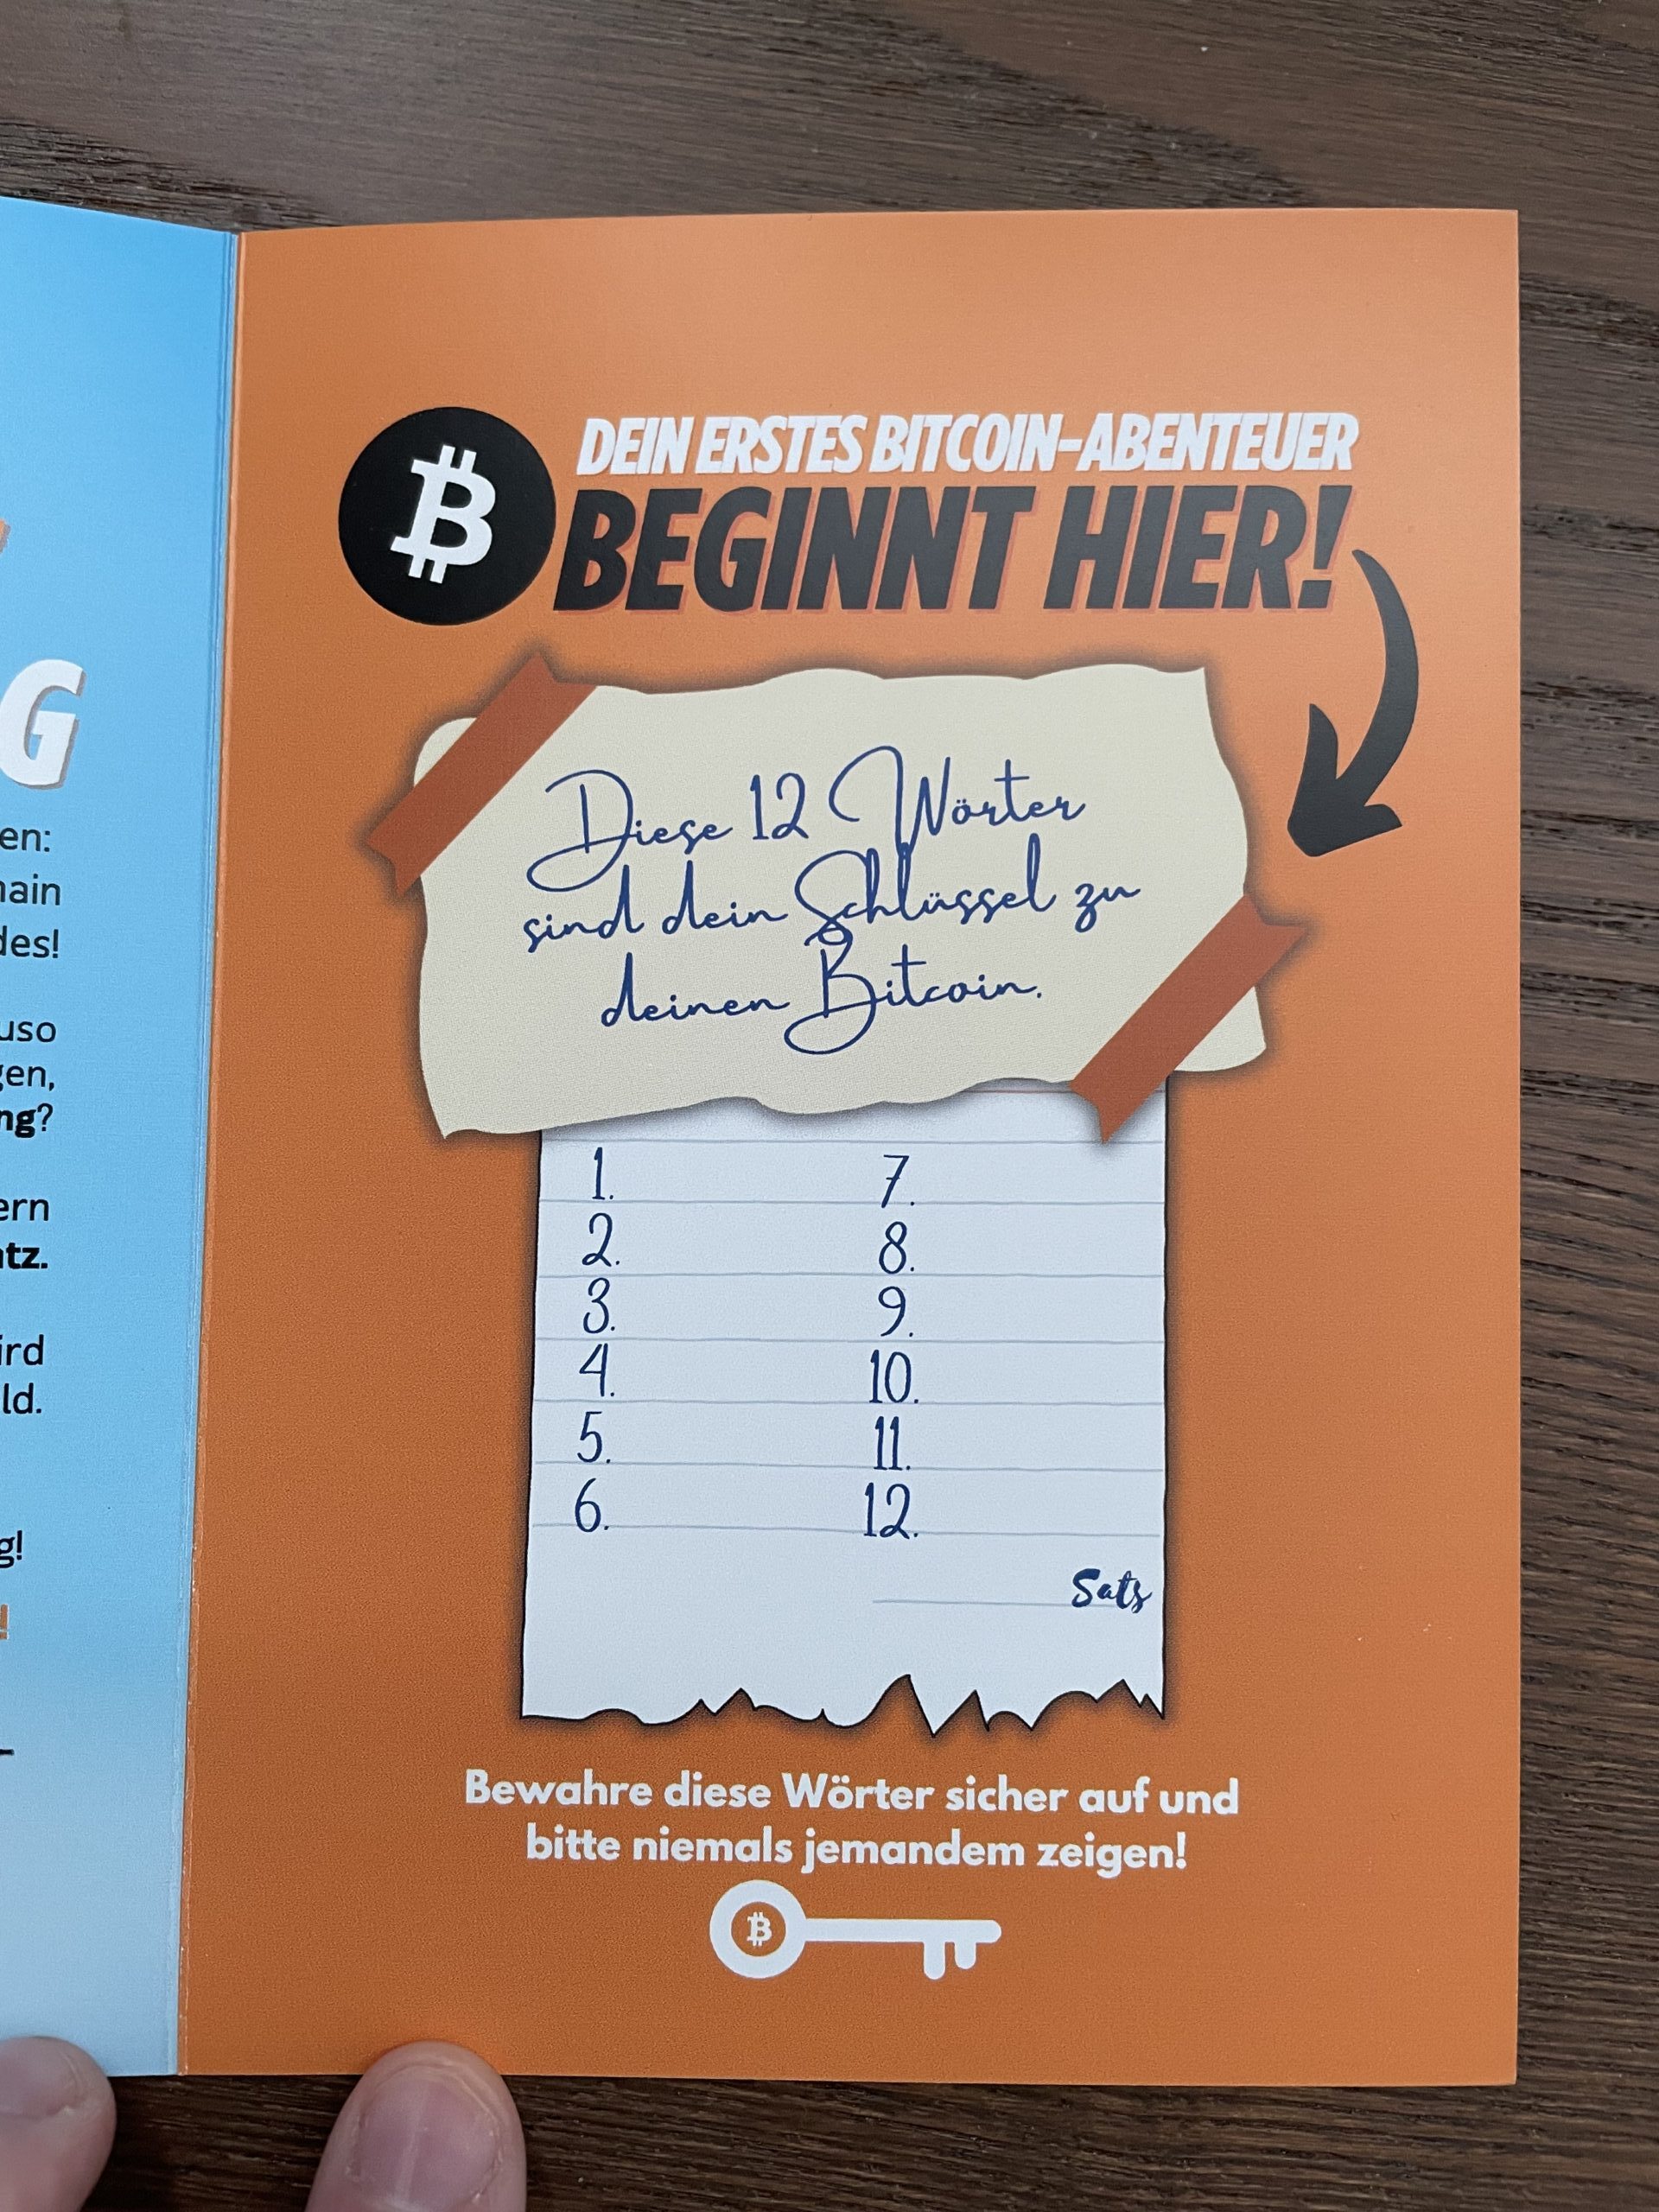 G
en:
des!
uso
gen,
ng?
ern
tz.
ird
ld.
g!
DEIN ERSTES BITCOIN-ABENTEUER
BEGINNT HIER!
Diese 12 Wörter
sind dein Schlüssel zu
deinen Bitcoin.
1. 7.
2. 8.
3. 9.
4. 10.
5. 11.
6. 12.
Sats
Bewahre diese Wörter sicher auf und
bitte niemals jemandem zeigen!